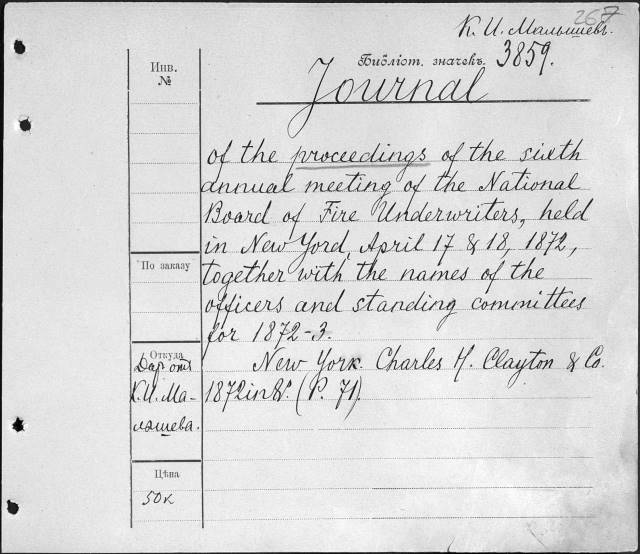 267
К. И. Малышевъ.
Инв.
№
Библіот. значекъ. 3859.
Journal
of the proceedings of the sixth
annual meeting of the National
Board of Fire Underwriters, held
in New Yord, April 17 & 18, 1872,
По заказу
together with the names of the
officers and standing committees
for 1872-3.
Откуда
Даръ отъ
К. И. Ма-
лышева.
New York. Charles H. Clayton & Co.
1872 in 8°. (P. 71).
Цѣна
50к